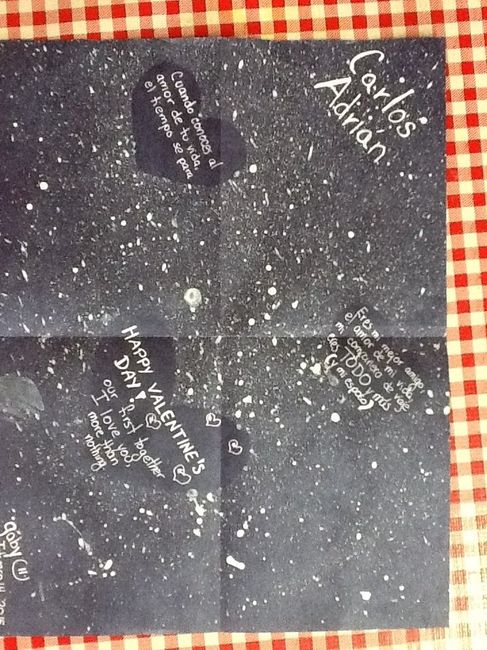 Carlos
Adrián
Cuando conoces al
amor de tu vida,
el tiempo se para
Eres mi mejor amigo
el amor de mi vida,
mi compañero de viaje
eres TODO y más
HAPPY VALENTINE'S
DAY!
our 1st together
I love you
more than
nothing
gaby